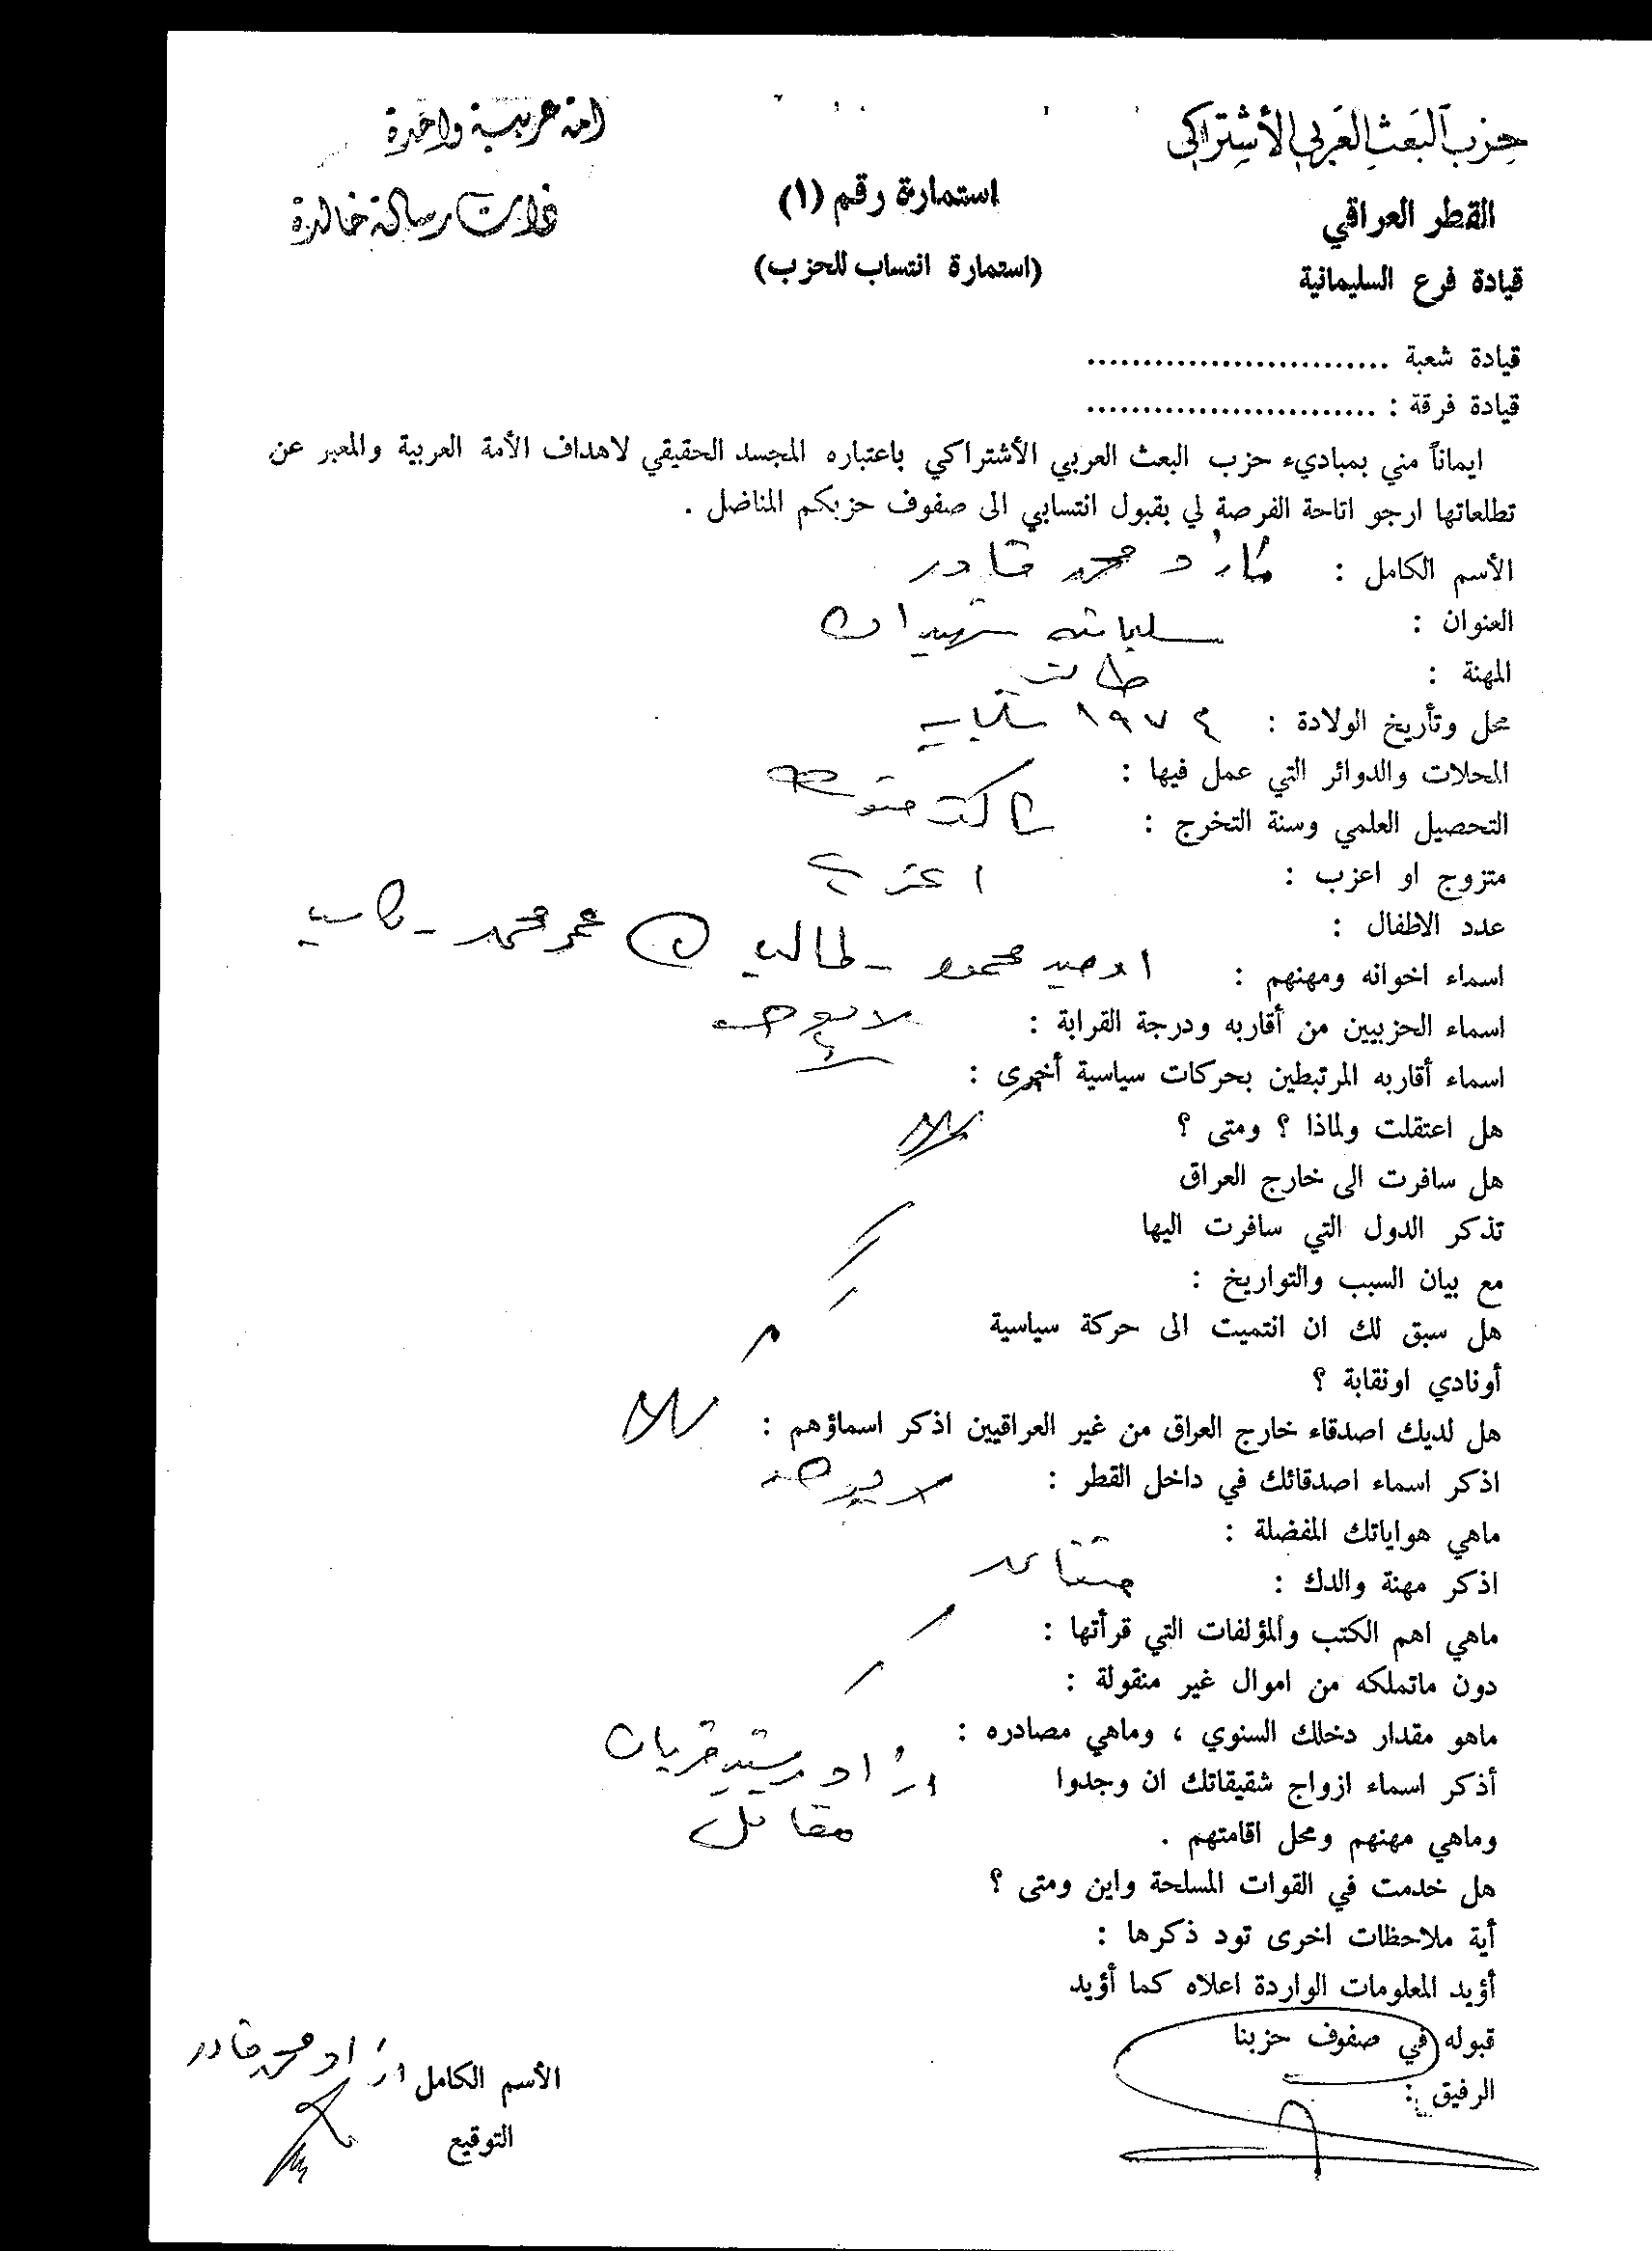 حزب البعث العربي الأشتراكي
امة عربية واحدة
القطر العراقي
استمارة رقم (١)
ذات رسالة خالدة
قيادة فرع السليمانية
(استمارة انتساب للحزب)
قيادة شعبة ...........................
قيادة فرقة : ..........................
ايماناً مني بمباديء حزب البعث العربي الأشتراكي باعتباره المجسد الحقيقي لاهداف الأمة العربية والمعبر عن
تطلعاتها ارجو اتاحة الفرصة لي بقبول انتسابي الى صفوف حزبكم المناضل .
الأسم الكامل : محمد قادر
العنوان : شهيدان
المهنة : طالب
محل وتأريخ الولادة : ١٩٧٤
المحلات والدوائر التي عمل فيها :
التحصيل العلمي وسنة التخرج : ثالث متوسط
متزوج او اعزب : اعزب
عدد الاطفال :
اسماء اخوانه ومهنهم : محمد - طالب عمر محمد - كاسب
اسماء الحزبيين من أقاربه ودرجة القرابة : لا يوجد
اسماء أقاربه المرتبطين بحركات سياسية أخرى : لا
هل اعتقلت ولماذا ؟ ومتى ؟ كلا
هل سافرت الى خارج العراق
تذكر الدول التي سافرت اليها
مع بيان السبب والتواريخ :
هل سبق لك ان انتميت الى حركة سياسية
أونادي اونقابة ؟
هل لديك اصدقاء خارج العراق من غير العراقيين اذكر اسماؤهم : كلا
اذكر اسماء اصدقائك في داخل القطر : لا يوجد
ماهي هواياتك المفضلة :
اذكر مهنة والدك : متقاعد
ماهي اهم الكتب والمؤلفات التي قرأتها :
دون ماتملكه من اموال غير منقولة :
ماهو مقدار دخلك السنوي ، وماهي مصادره :
أذكر اسماء ازواج شقيقاتك ان وجدوا ازاد رشيد
وماهي مهنهم ومحل اقامتهم . مقاتل
هل خدمت في القوات المسلحة واين ومتى ؟
أية ملاحظات اخرى تود ذكرها :
أؤيد المعلومات الواردة اعلاه كما أؤيد
قبوله في صفوف حزبنا
الرفيق :
الأسم الكامل ازاد محمد قادر
التوقيع